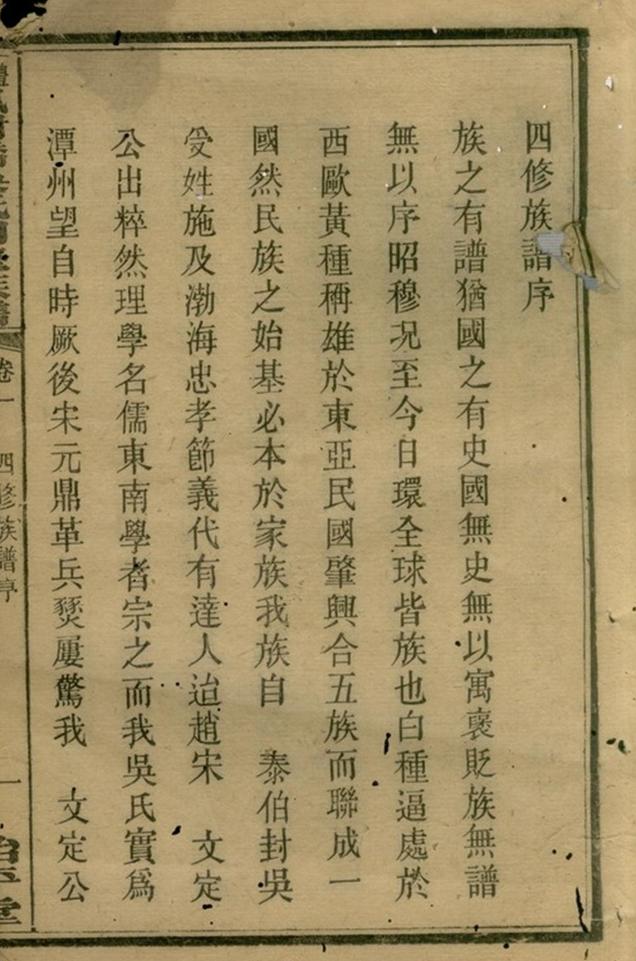 四修族譜序
族之有譜猶國之有史國無史無以寓褒貶族無譜
無以序昭穆况至今日環全球皆族也白種逼處於
西歐黃種稱雄於東亞民國肇興合五族而聯成一
國然民族之始基必本於家族我族自　泰伯封吳
受姓施及渤海忠孝節義代有達人迨趙宋　文定
公出粹然理學名儒東南學者宗之而我吳氏實爲
潭州望自時厥後宋元鼎革兵燹屢驚我　文定公
卷一　四修族譜序　一